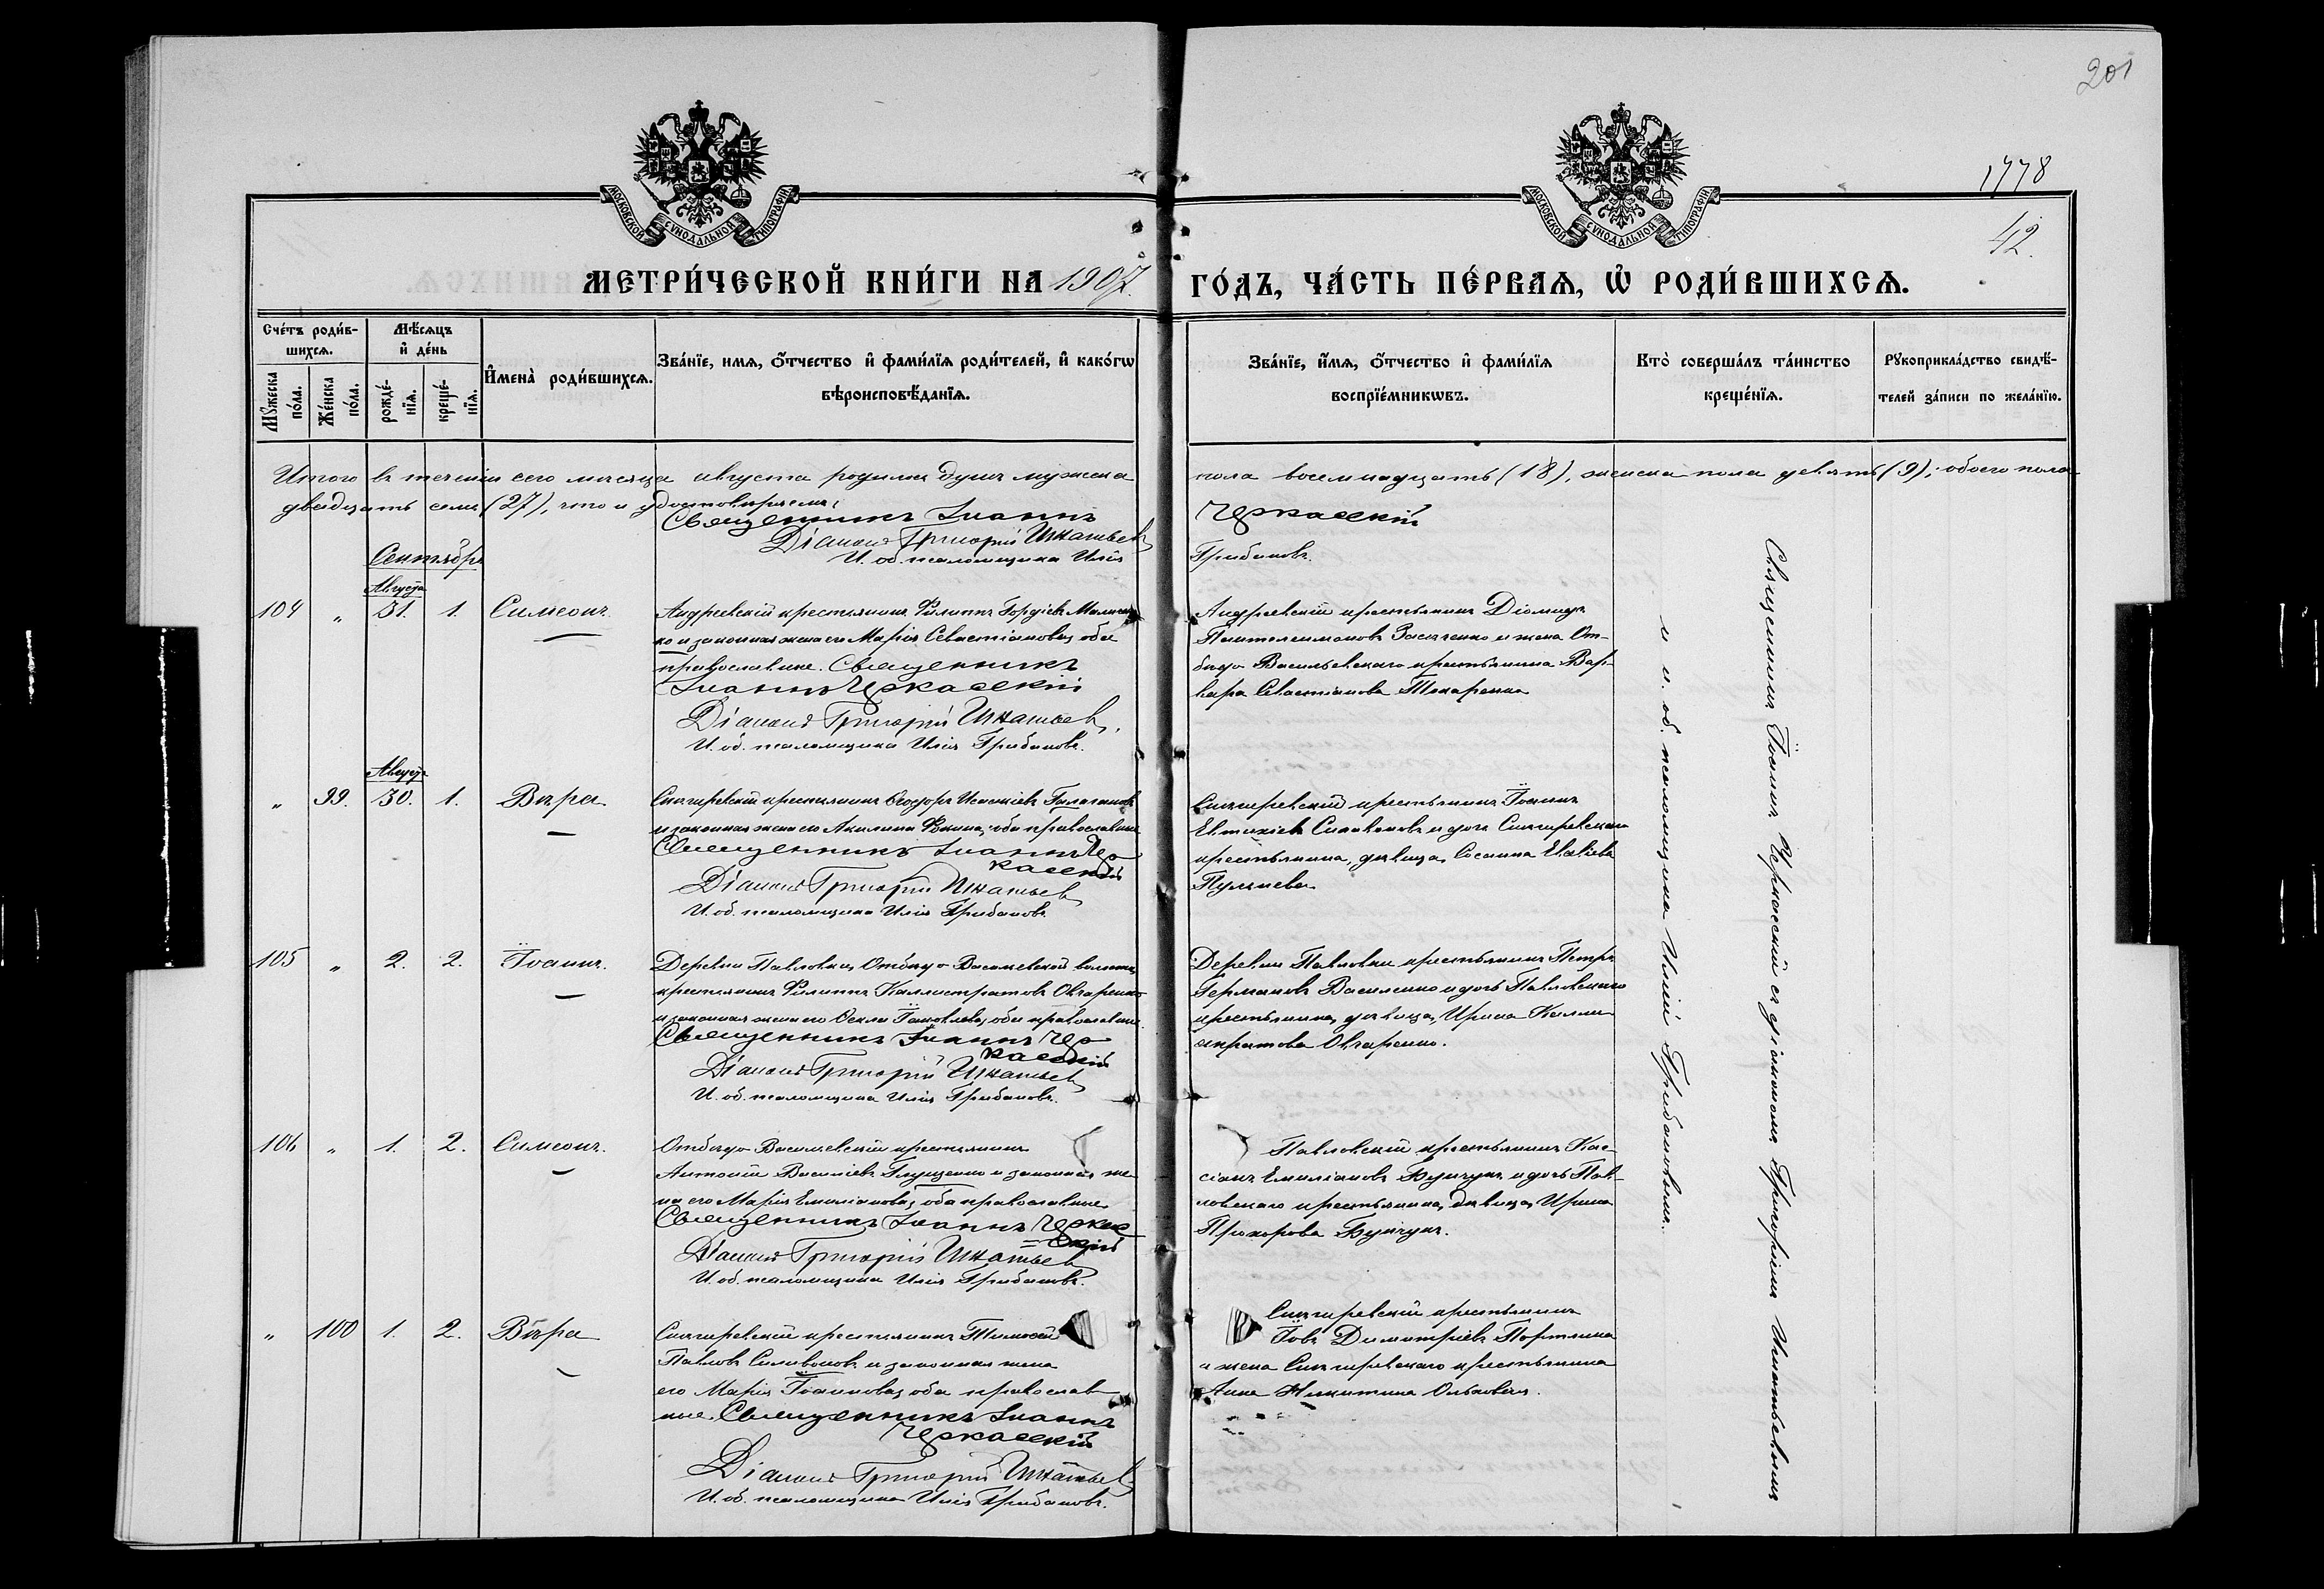 201
1778
42.
МОСКОВСКОЙ СѴНОДАЛЬНОЙ ТИПОГРАФІИ
МОСКОВСКОЙ СѴНОДАЛЬНОЙ ТИПОГРАФІИ
МЕТРИ́ЧЕСКОЙ КНИ́ГИ НА 1907. ГО́ДЪ, ЧА́СТЬ ПЕ́РВАѦ, Ѡ҆ РОДИ́ВШИХСѦ.
Сче́тъ роди́в-
шихсѧ.
Мѣ́сѧцъ
и҆ де́нь
Мꙋ́жеска по́ла.
Же́нска по́ла.
рожде́-
нїѧ.
креще́-
нїѧ.
И҆мена̀ роди́вшихсѧ.
Зва́нїе, имѧ, ѻ҆́тчество и҆ фами́лїѧ роди́телей, и҆ како́гѡ
вѣроисповѣ́данїѧ.
Зва́нїе, и҆́мѧ, ѻ҆́тчество и҆ фами́лїѧ
воспрїе́мникѡвъ.
Кто̀ соверша́лъ та́инство
креще́нїѧ.
Рꙋкоприкла́дство свидѣ́-
телей за́писи по жела́нїю.
Итого въ теченіи сего мѣсяца августа родилось душъ мужеска пола восемнадцать (18), женска пола девять (9), обоего пола
двадцать семь (27), что и удостовѣряемъ:
Священникъ Іоаннъ Черкасскій
Діаконъ Григорій Игнатьевъ
И. об. псаломщика Илія Грибановъ.
Сентябрь
Августа
104 „ 31. 1. Симеонъ.
Андреевскій крестьянинъ Филиппъ Гордіевъ
ко и законная жена его Марія Севастіанова, оба
православные. Священникъ
Іоаннъ Черкасскій
Діаконъ Григорій Игнатьевъ.
И. об. псаломщика Илія Грибановъ.
Андреевскій крестьянинъ Діомидъ
Пантелеимоновъ и жена От-
бѣдо-Васильевскаго крестьянина Вар-
вара Севастіанова
Августа
„ 99. 30. 1. Вѣра
Снигиревскій крестьянинъ Ѳеодоръ
и законная жена его Акилина оба православные
Священникъ Іоаннъ Чер-
касскій
Діаконъ Григорій Игнатьевъ
И. об. псаломщика Илія Грибановъ.
Снигиревскій крестьянинъ Іоаннъ
Евтихіевъ и дочь Снигиревскаго
крестьянина, дѣвица,
105 „ 2. 2. Іоаннъ.
Деревни Павловки, Отбѣдо-Васильевской волости,
крестьянинъ Филиппъ Каллистратовъ Овчаренко
и законная жена его Ѳекла Іаковлева, оба православные.
Священникъ Іоаннъ Чер-
касскій
Діаконъ Григорій Игнатьевъ
И. об. псаломщика Илія Грибановъ.
Деревни Павловки крестьянинъ Петръ
Германовъ Василенко и дочь Павловскаго
крестьянина, дѣвица, Ирина Калли-
стратова Овчаренко.
106 „ 1. 2. Симеонъ.
Отбѣдо-Васильевскій крестьянинъ
Антоній Василіевъ Глущенко и законная же-
на его Марія Емиліанова, оба православные.
Священникъ Іоаннъ Черкас-
скій
Діаконъ Григорій Игнатьевъ
И. об. псаломщика Илія Грибановъ.
Павловскій крестьянинъ Кас-
сіанъ Емиліановъ Бунчукъ и дочь Пав-
ловскаго крестьянина, дѣвица, Ирина
Прохорова Бунчукъ.
„ 100 1. 2. Вѣра
Снигиревскій крестьянинъ Тимоѳей
Павловъ Силивоновъ и законная жена
его Марія Іоаннова, оба православ-
ные. Священникъ Іоаннъ
Черкасскій
Діаконъ Григорій Игнатьевъ
И. об. псаломщика Илія Грибановъ.
Снигиревскій крестьянинъ
Іовъ Димитріевъ
и жена Снигиревскаго крестьянина
Анна Никитина
Священникъ Іоаннъ Черкасскій съ діакономъ Григоріемъ Игнатьевымъ
и и. об. псаломщика Иліей Грибановымъ.